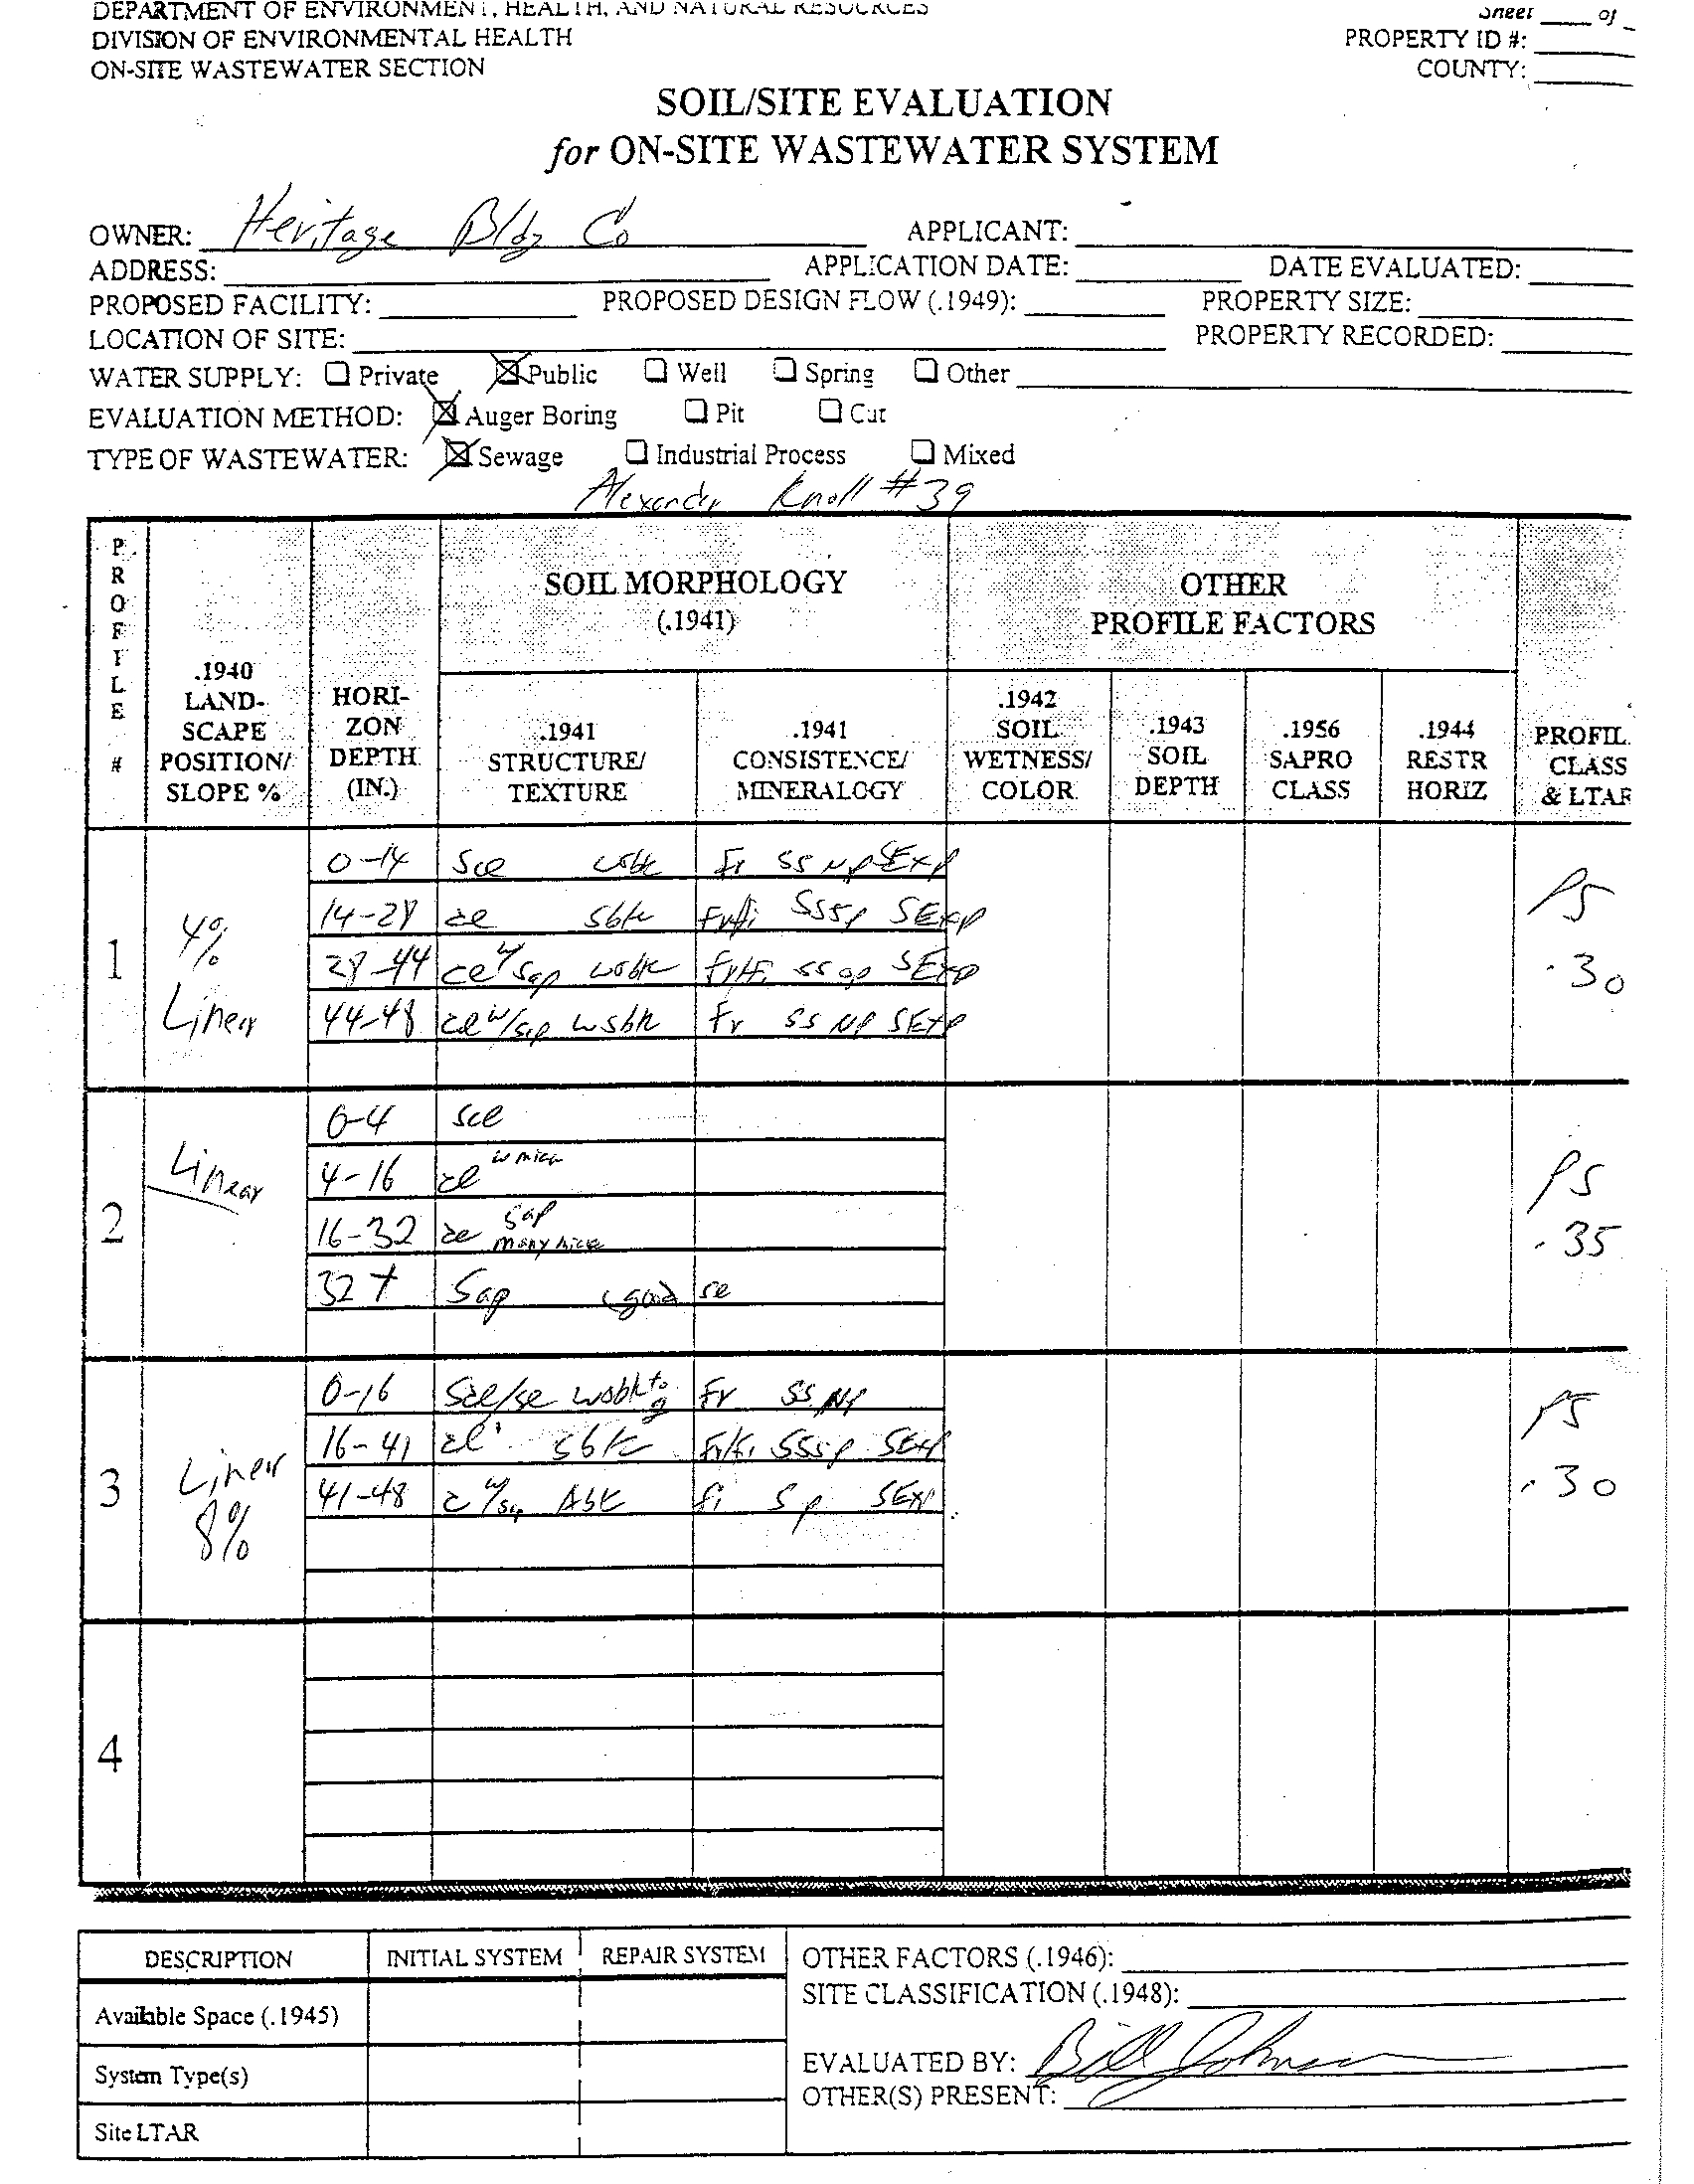 DEPARTMENT OF ENVIRONMENT, HEALTH, AND NATURAL RESOURCES
Sheet ____ of _
DIVISION OF ENVIRONMENTAL HEALTH
PROPERTY ID #:
ON-SITE WASTEWATER SECTION
COUNTY:
SOIL/SITE EVALUATION
for ON-SITE WASTEWATER SYSTEM
OWNER: Heritage Bldg Co APPLICANT:
ADDRESS: APPLICATION DATE: DATE EVALUATED:
PROPOSED FACILITY: PROPOSED DESIGN FLOW (.1949): PROPERTY SIZE:
LOCATION OF SITE: PROPERTY RECORDED:
WATER SUPPLY: ☐ Private ☒ Public ☐ Well ☐ Spring ☐ Other
EVALUATION METHOD: ☒ Auger Boring ☐ Pit ☐ Cut
TYPE OF WASTEWATER: ☒ Sewage ☐ Industrial Process ☐ Mixed
Alexander Knoll #39
PROFILE #
.1940 LAND-SCAPE POSITION/ SLOPE %
HORI-ZON DEPTH (IN.)
SOIL MORPHOLOGY (.1941)
.1941 STRUCTURE/ TEXTURE
.1941 CONSISTENCE/ MINERALOGY
OTHER PROFILE FACTORS
.1942 SOIL WETNESS/ COLOR
.1943 SOIL DEPTH
.1956 SAPRO CLASS
.1944 RESTR HORIZ
PROFIL CLASS & LTAR
1
4% Linear
0-14 Scl wsbk Fr SS NP SEXP
14-28 cl sbk Fr/fi SSSP SEXP
28-44 cl w/ sap wsbk fr/fi SS SP SEXP
44-48 cl w/sap wsbk fr SS NP SEXP
PS
.30
2
Linear
0-4 scl
4-16 cl w mica
16-32 cl sap many mica
32+ Sap good
PS
.35
3
Linear 8%
0-16 Scl/sl wsbk to g Fr SS NP
16-41 cl sbk fr/fi SSSP SEXP
41-48 c w/sap Abk fi S P SEXP
PS
.30
4
DESCRIPTION INITIAL SYSTEM REPAIR SYSTEM
Available Space (.1945)
System Type(s)
Site LTAR
OTHER FACTORS (.1946):
SITE CLASSIFICATION (.1948):
EVALUATED BY: Bill Johnson
OTHER(S) PRESENT: